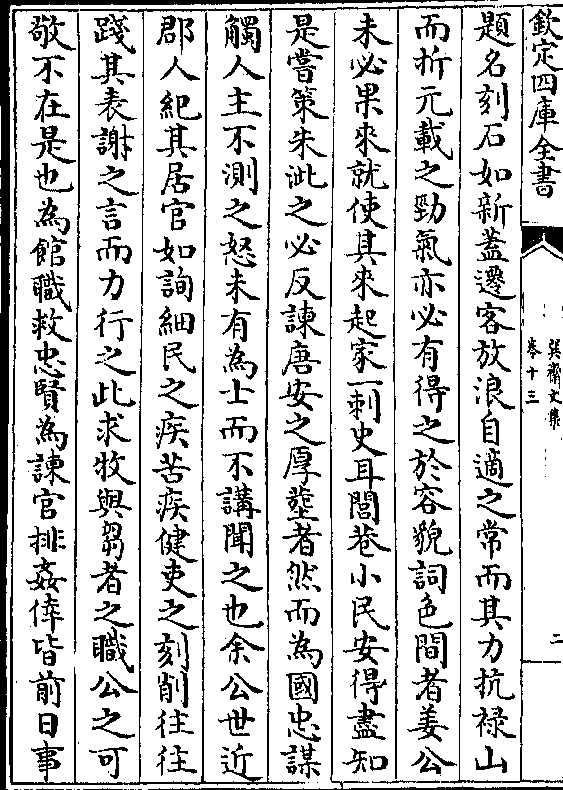 欽定四庫全書
巽齋文集
卷十三
二
題名刻石如新蓋遷客放浪自適之常而其力抗禄山
而折元載之勁氣亦必有得之於容貌詞色間者姜公
未必果來就使其來起家一刺史耳閭巷小民安得盡知
是嘗策朱泚之必反諫唐安之厚塟者然而為國忠謀
觸人主不測之怒未有為士而不講聞之也余公世近
郡人紀其居官如詢細民之疾苦疾健吏之刻削往往
踐其表謝之言而力行之此求牧與芻者之職公之可
敬不在是也為館職救忠賢為諫官排姦倖皆前日事